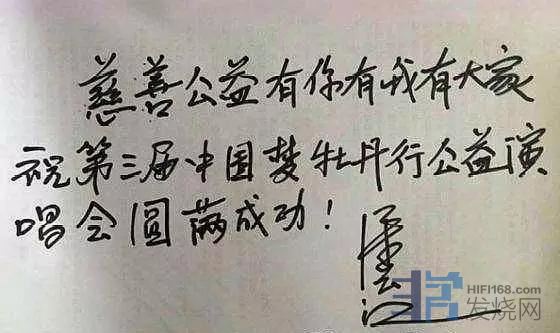 慈善公益有你有我有大家
祝第三届中国梦牡丹行公益演
唱会圆满成功！
HIFI168.com
发烧网